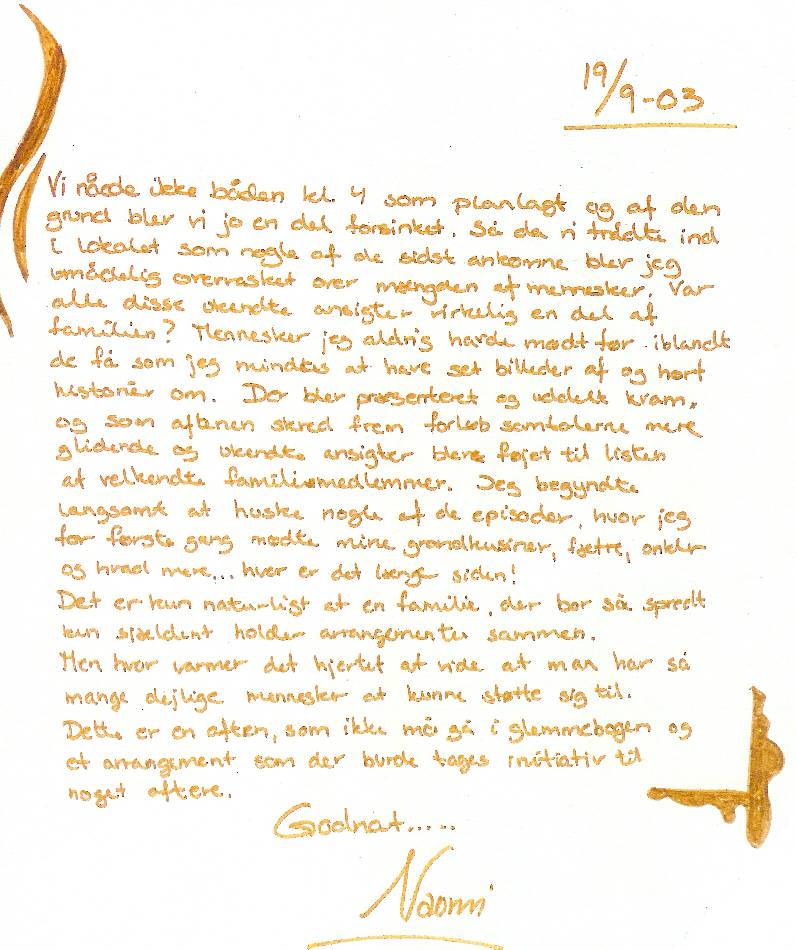 19/9-03
Vi nåede ikke båden kl. 4 som planlagt og af den
grund blev vi jo en del forsinket. Så da vi trådte ind
i lokalet som nogle af de sidst ankomne blev jeg
umådelig overrasket over mængden af mennesker. Var
alle disse ukendte ansigter virkelig en del af
familien? Mennesker jeg aldrig havde mødt før iblandt
de få som jeg mindtes at have set billeder af og hørt
historier om. Der blev præsenteret og uddelt kram,
og som aftenen skred frem forløb samtalerne mere
glidende og ukendte ansigter blev føjet til listen
af velkendte familiemedlemmer. Jeg begyndte
langsomt at huske nogle af de episoder, hvor jeg
for første gang mødte mine grandkusiner, fætre, onkler
og hvad mere... hvor er det længe siden!
Det er kun naturligt at en familie, der bor så spredt
kun sjældent holder arrangementer sammen.
Men hvor varmer det hjertet at vide at man har så
mange dejlige mennesker at kunne støtte sig til.
Dette er en aften, som ikke må gå i glemmebogen og
et arrangement som der burde tages initiativ til
noget oftere.
Godnat.....
Naomi